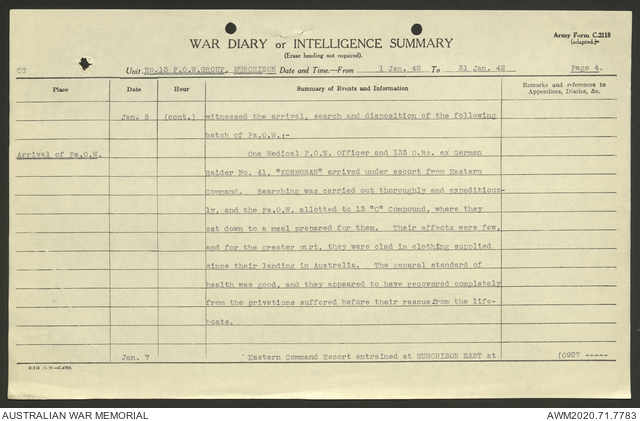 Army Form C.2118
(adapted.)
WAR DIARY or INTELLIGENCE SUMMARY
(Erase heading not required).
CG
Unit No.13 P.O.W.GROUP, MURCHISON Date and Time.—From 1 Jan. 42 To 31 Jan. 42 Page 4.
Place Date Hour Summary of Events and Information Remarks and references to Appendices, Diaries, &c.
Jan. 5 (cont.) witnessed the arrival, search and disposition of the following
batch of Ps.O.W.:-
Arrival of Ps.O.W. One Medical P.O.W. Officer and 133 O.Rs. ex German
Raider No. 41, "KORMORAN" arrived under escort from Eastern
Command. Searching was carried out thoroughly and expeditious-
ly, and the Ps.O.W. allotted to 13 "C" Compound, where they
sat down to a meal prepared for them. Their effects were few,
and for the greater part, they were clad in clothing supplied
since their landing in Australia. The general standard of
health was good, and they appeared to have recovered completely
from the privations suffered before their rescue from the life-
boats.
Jan. 7 Eastern Command Escort entrained at MURCHISON EAST at (0927 -----
AUSTRALIAN WAR MEMORIAL AWM2020.71.7783